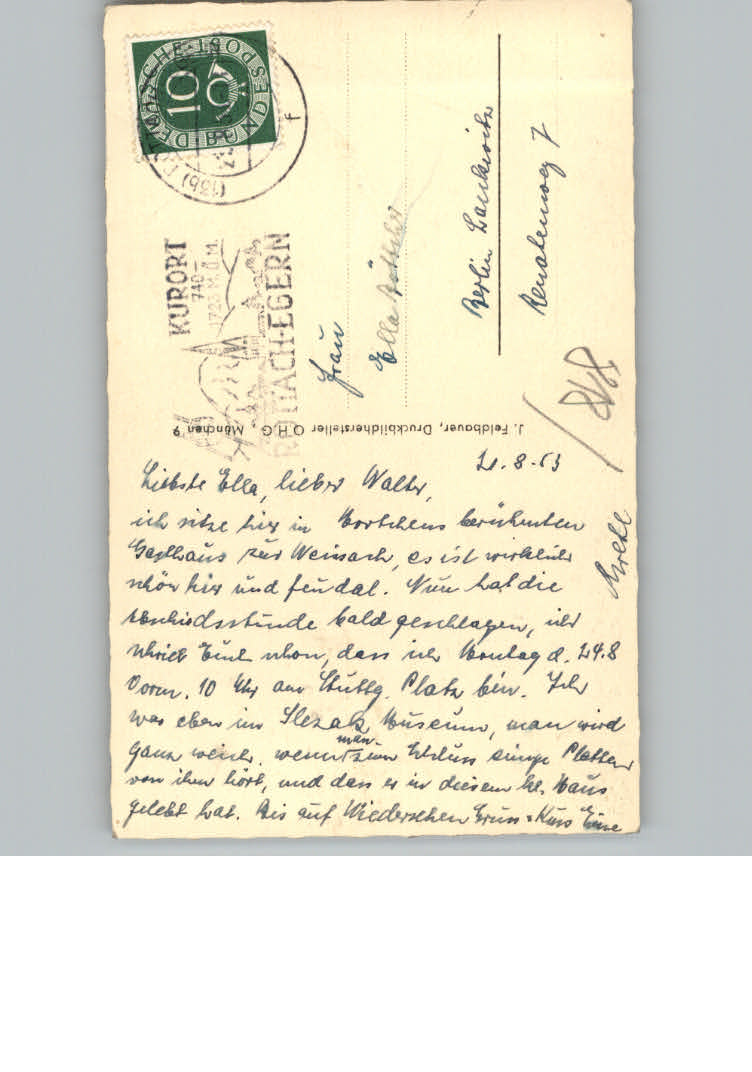 DEUTSCHE BUNDESPOST
10
(13b)
f
KURORT
740–
1723 M.Ü.M.
ROTTACH-EGERN
Frau
Ella Böttcher
Berlin Lankwitz
Renatenweg 7
J. Feldbauer, Druckbildhersteller O.H.G., München 9
21.8.53
Liebste Ella, lieber Walter,
ich sitze hier in berühmten
Gasthaus zur Weissach, es ist wirklich
schön hier und feudal. Nun hat die
Abschiedsstunde bald geschlagen, ich
schrieb Euch schon, dass ich Montag d. 24.8
Vorm. 10 Uhr am Stuttg. Platz bin. Ich
war eben im Slezak Museum, man wird
ganz weich, wenn man zum Schluss einige Platten
von ihm hört, und dass er in diesem kl. Haus
gelebt hat. Bis auf Wiedersehen Gruss + Kuss Eure